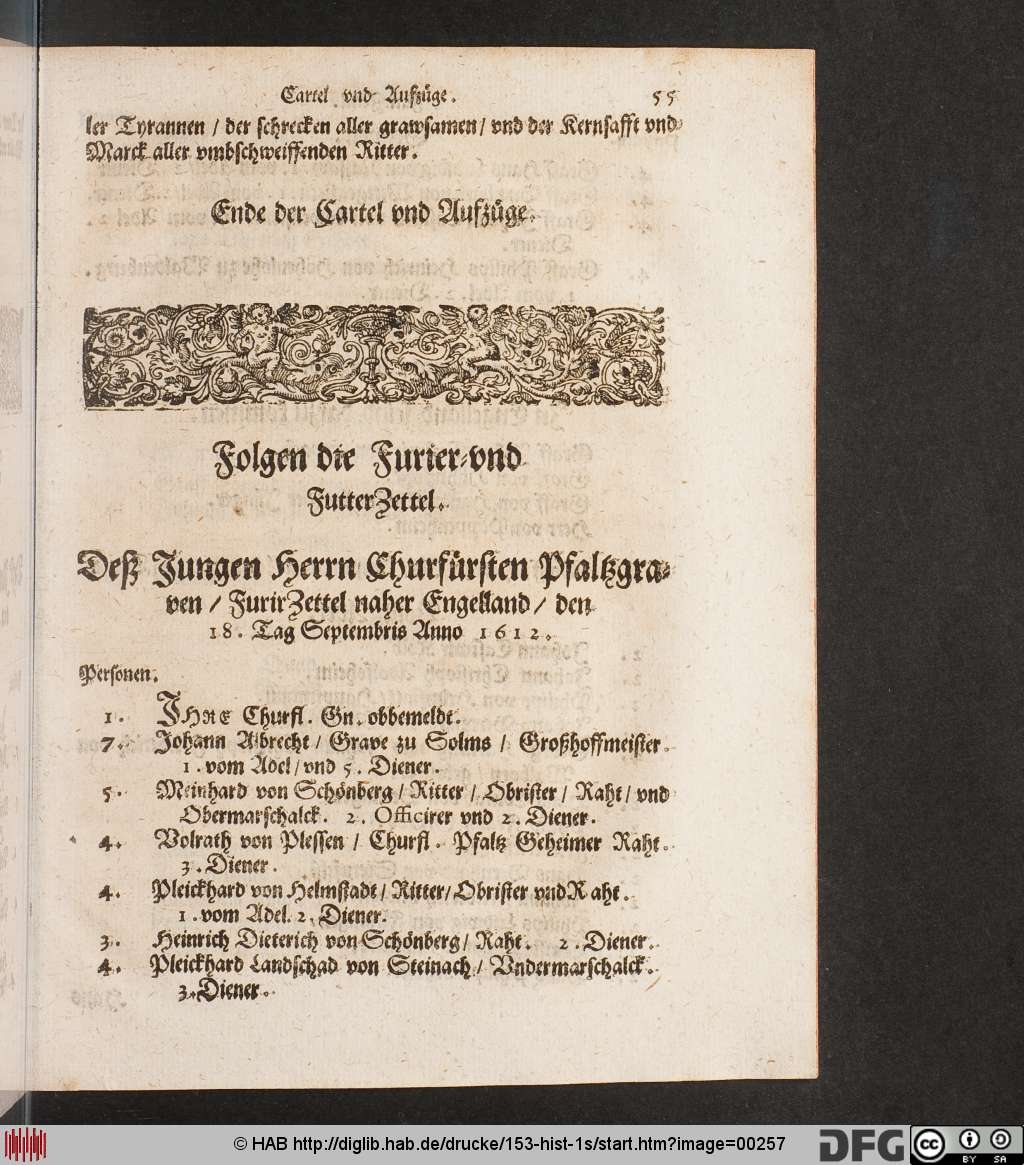 Cartel vnd Auffzüge. 55
ler Tyrannen / der schrecken aller grawsamen / vnd der Kernsafft vnd
Marck aller vmbschweiffenden Ritter.
Ende der Cartel vnd Auffzüge.
Folgen die Furier-vnd
FutterZettel.
Deß Jungen Herrn Churfürsten Pfaltzgra-
ven / FurirZettel naher Engelland / den
18. Tag Septembris Anno 1612.
Personen.
1. IHRE Churfl. Gn. obbemeldt.
7. Johann Albrecht / Grave zu Solms / Großhoffmeister.
1. vom Adel / vnd 5. Diener.
5. Meinhard von Schönberg / Ritter / Obrister / Raht / vnd
Obermarschalck. 2. Officirer vnd 2. Diener.
4. Volrath von Plessen / Churfl. Pfaltz Geheimer Raht.
3. Diener.
4. Pleickhard von Helmstadt / Ritter / Obrister vnd Raht.
1. vom Adel. 2. Diener.
3. Heinrich Dieterich von Schönberg / Raht. 2. Diener.
4. Pleickhard Landschad von Steinach / Vndermarschalck.
3. Diener.
© HAB http://diglib.hab.de/drucke/153-hist-1s/start.htm?image=00257
DFG
cc BY SA